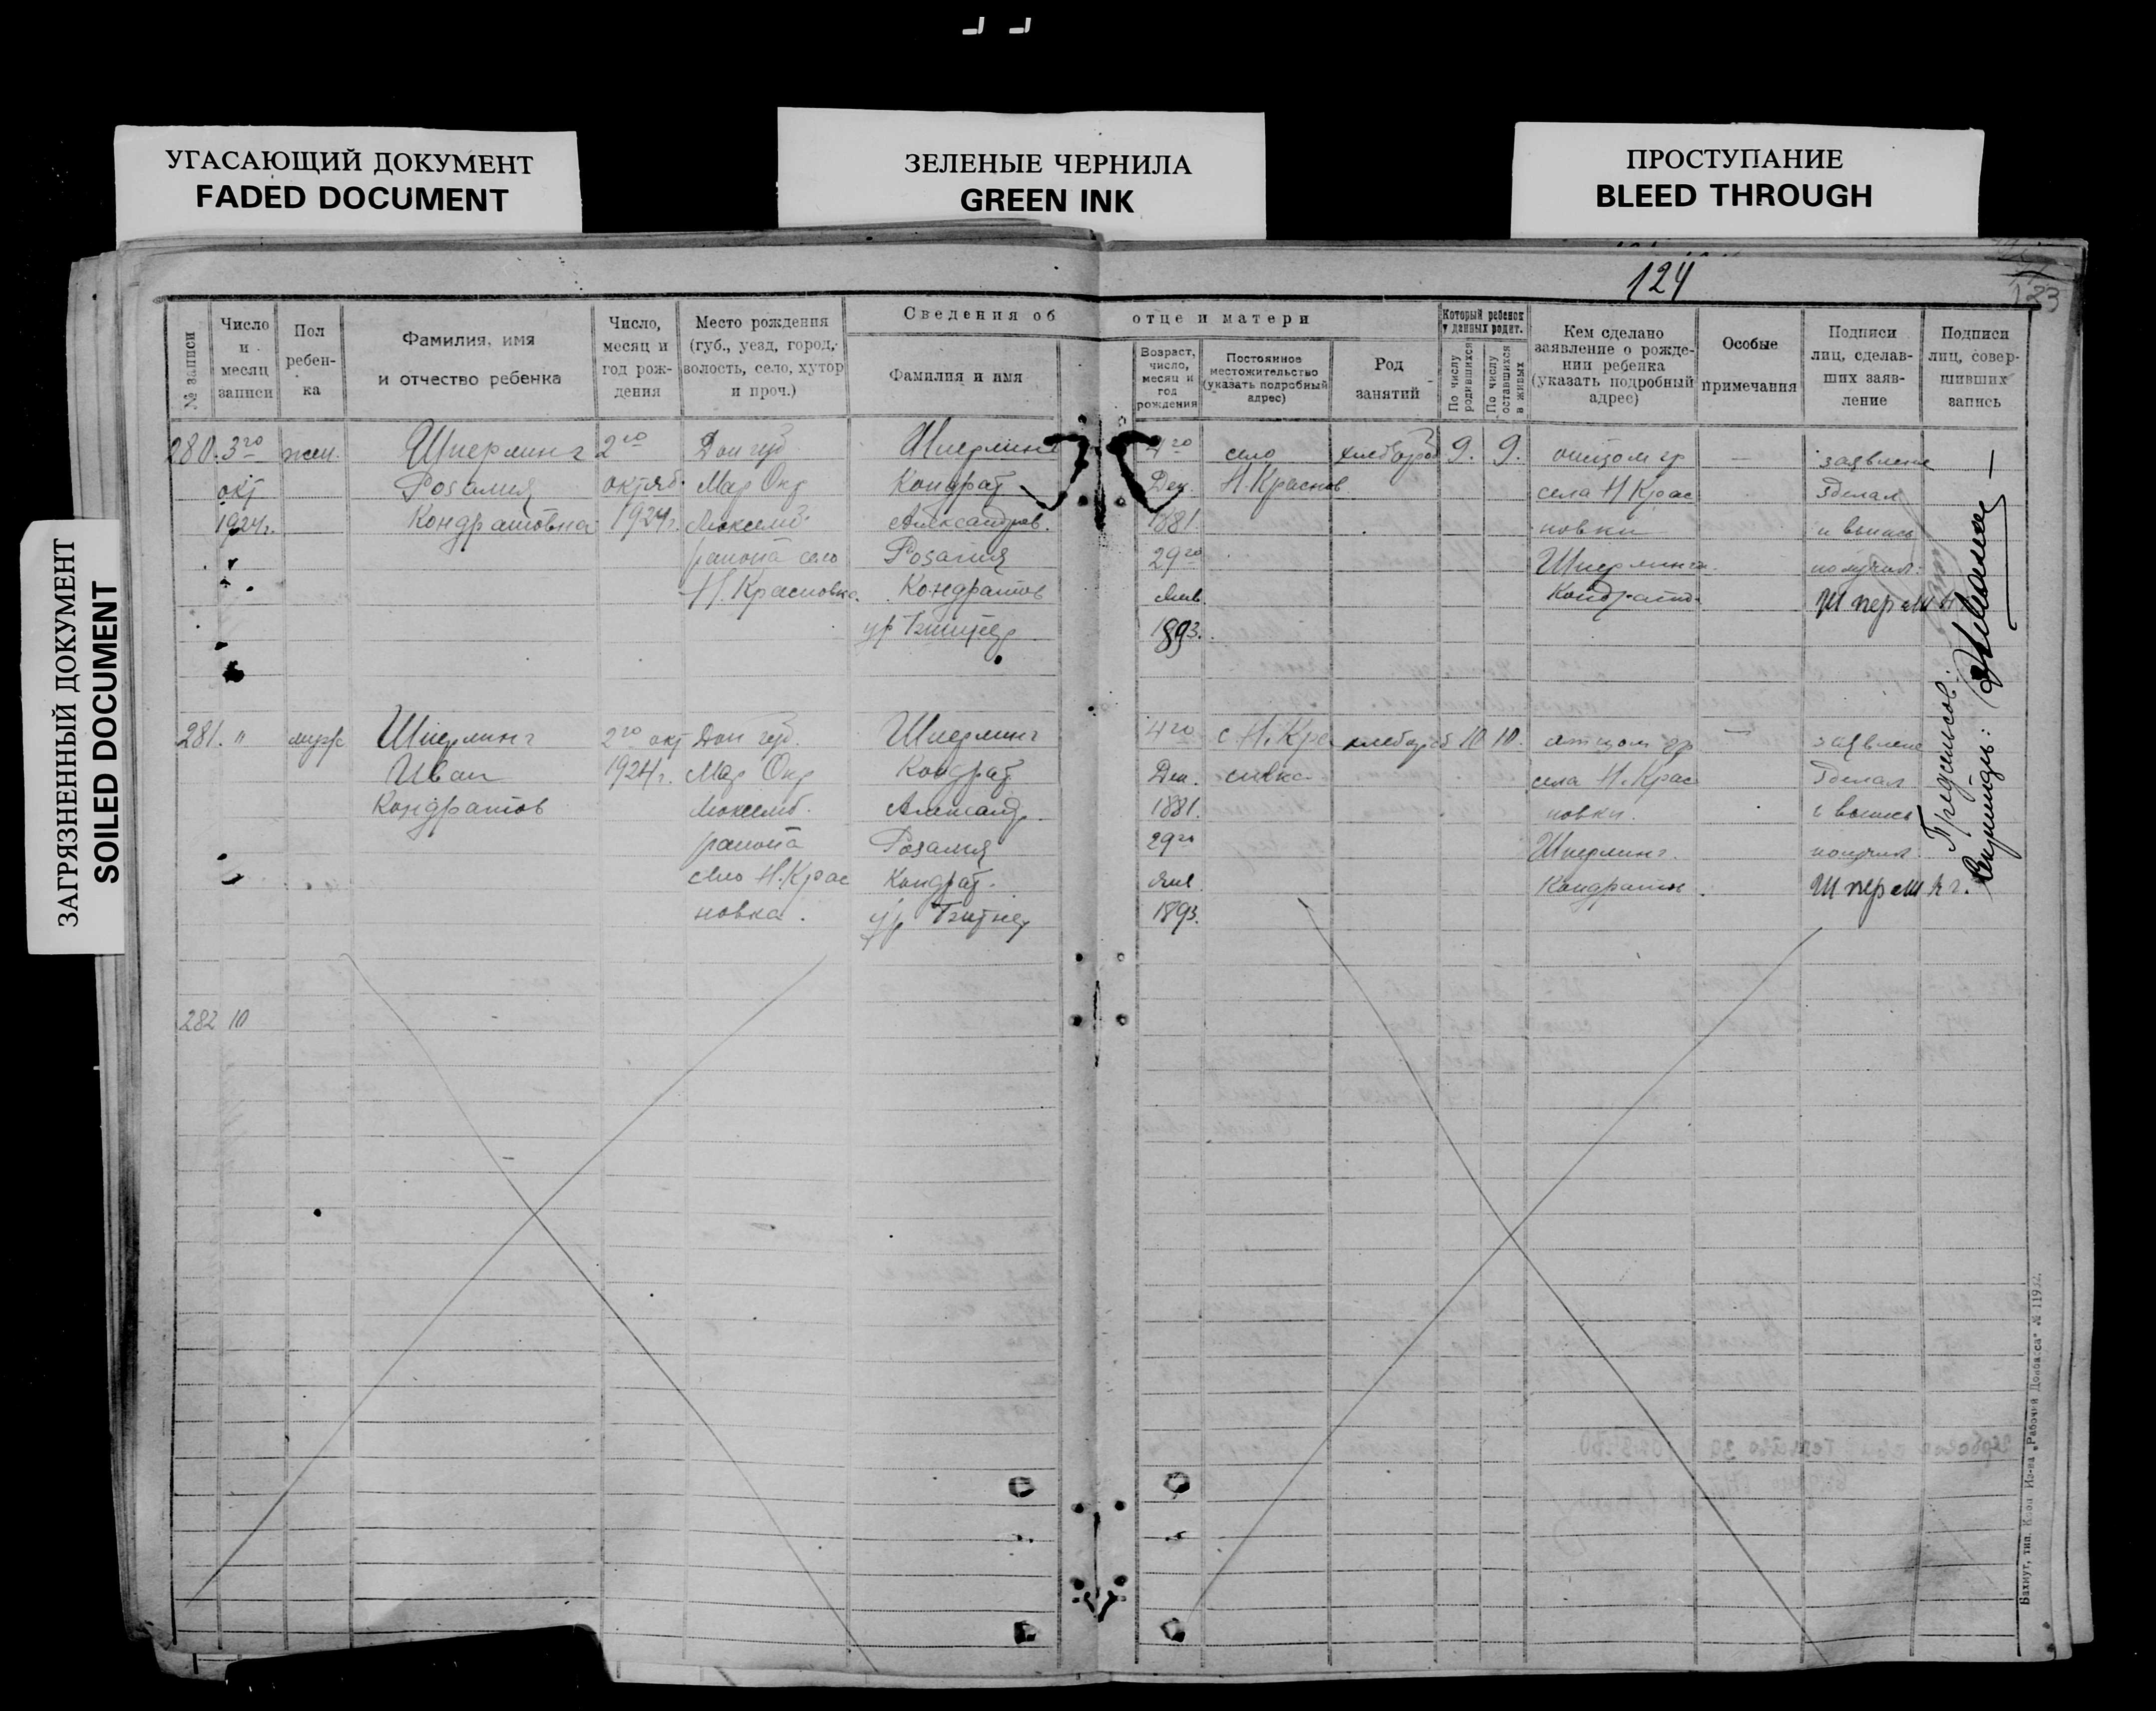 УГАСАЮЩИЙ ДОКУМЕНТ
FADED DOCUMENT
ЗЕЛЕНЫЕ ЧЕРНИЛА
GREEN INK
ПРОСТУПАНИЕ
BLEED THROUGH
ЗАГРЯЗНЕННЫЙ ДОКУМЕНТ
SOILED DOCUMENT
124
123
№ записи
Число
и
месяц
записи
Пол
ребен-
ка
Фамилия, имя
и отчество ребенка
Число,
месяц и
год рож-
дения
Место рождения
(губ., уезд, город,
волость, село, хутор
и проч.)
Сведения об отце и матери
Фамилия и имя
Возраст,
число,
месяц и
год
рождения
Постоянное
местожительство
(указать подробный
адрес)
Род
занятий
Который ребенок
у данных родит.
По числу
родившихся
По числу
оставшихся
в живых
Кем сделано
заявление о рожде-
нии ребенка
(указать подробный
адрес)
Особые
примечания
Подписи
лиц, сделав-
ших заяв-
ление
Подписи
лиц, совер-
шивших
запись
280.
3го
окт
1924г.
жен.
Шперлинг
Розалия
Кондратовна
2го
октяб.
1924г.
Дон губ
Мар Окр
Люксемб.
района село
Н. Красновка.
Шперлинг
Кондрат
Александров.
Розалия
Кондратов
ур
4го
Дек.
1881.
29го
Янв.
1893.
село
Н. Краснов
хлебороб
9.
9.
отцом гр
села Н Крас
новки
Шперлинга.
Кондрато.
—
заявление
Зделал
и выпись
получил:
Шперлинг
281.
"
муж
Шперлинг
Иван
Кондратов
2го окт
1924г.
Дон губ.
Мар Окр
Люксемб.
района
село Н. Крас
новка.
Шперлинг
Кондрат
Александр.
Розалия
Кондрат.
ур
4го
Дек.
1881.
29го
Янв
1893.
с Н. Кра
сновка
хлебороб
10
10.
отцом гр
села Н. Крас
новки.
Шперлинг.
Кондратом.
—
заявление
Зделал
и выпись
получил.
Шперлинг.
Секретарь:
282
10
Бахмут, тип. Кооп. Из-ва „Рабочий Донбасса" № 11932.